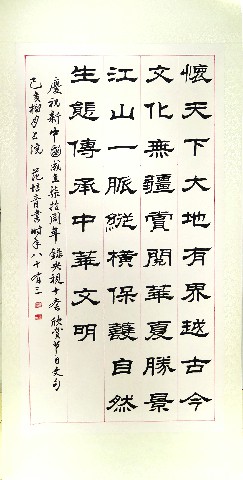 懷天下大地有界越古今
文化無疆賞閱華夏勝景
江山一脈縱橫保護自然
生態傳承中華文明
慶祝新中國成立柒拾周年 錄央視十套 欣賞節目文句
己亥榴月上浣 范培音書時年八十有三